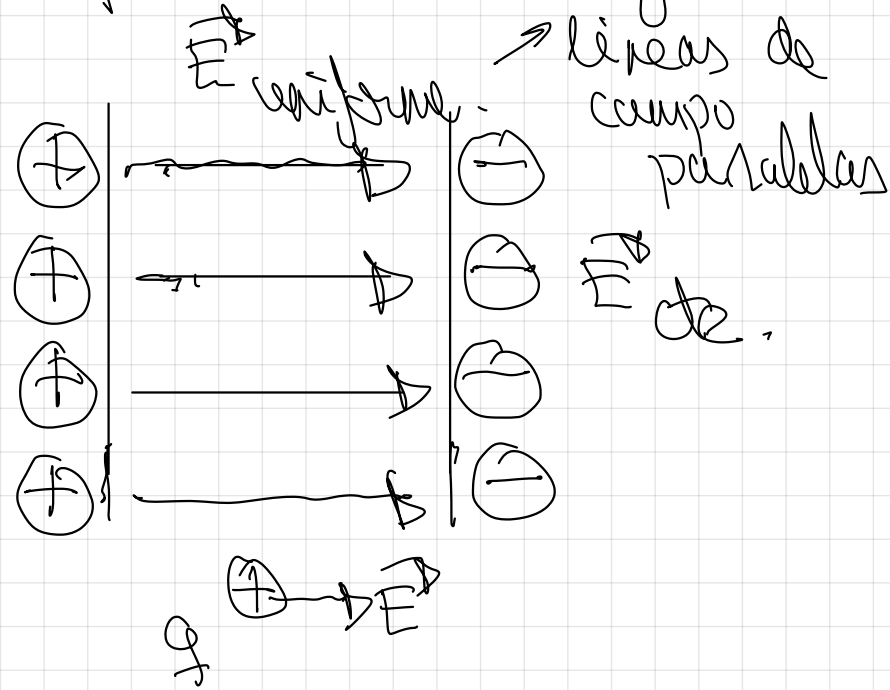 E uniforme.
líneas de
campo
paralelas
+ −
+ −
E cte.
+ −
+ −
+ E
q